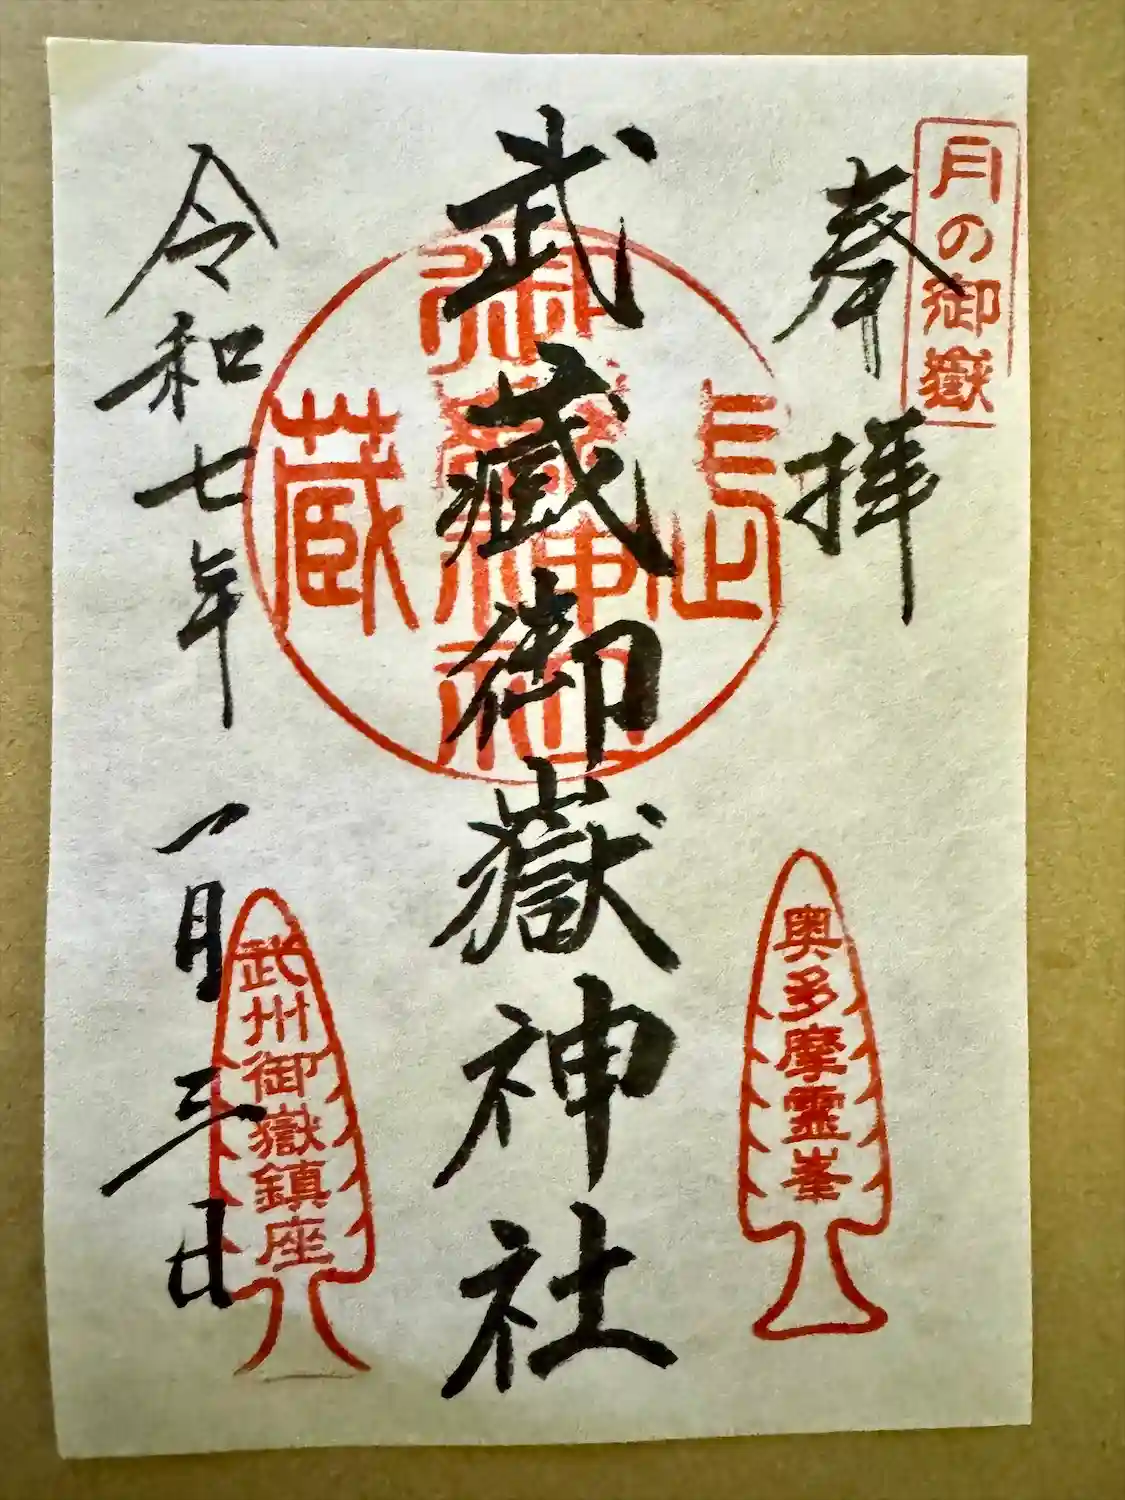 月の御嶽
奉拝
奥多摩霊峯
武蔵御嶽神社
蔵
武州御嶽鎮座
令和七年 一月三日